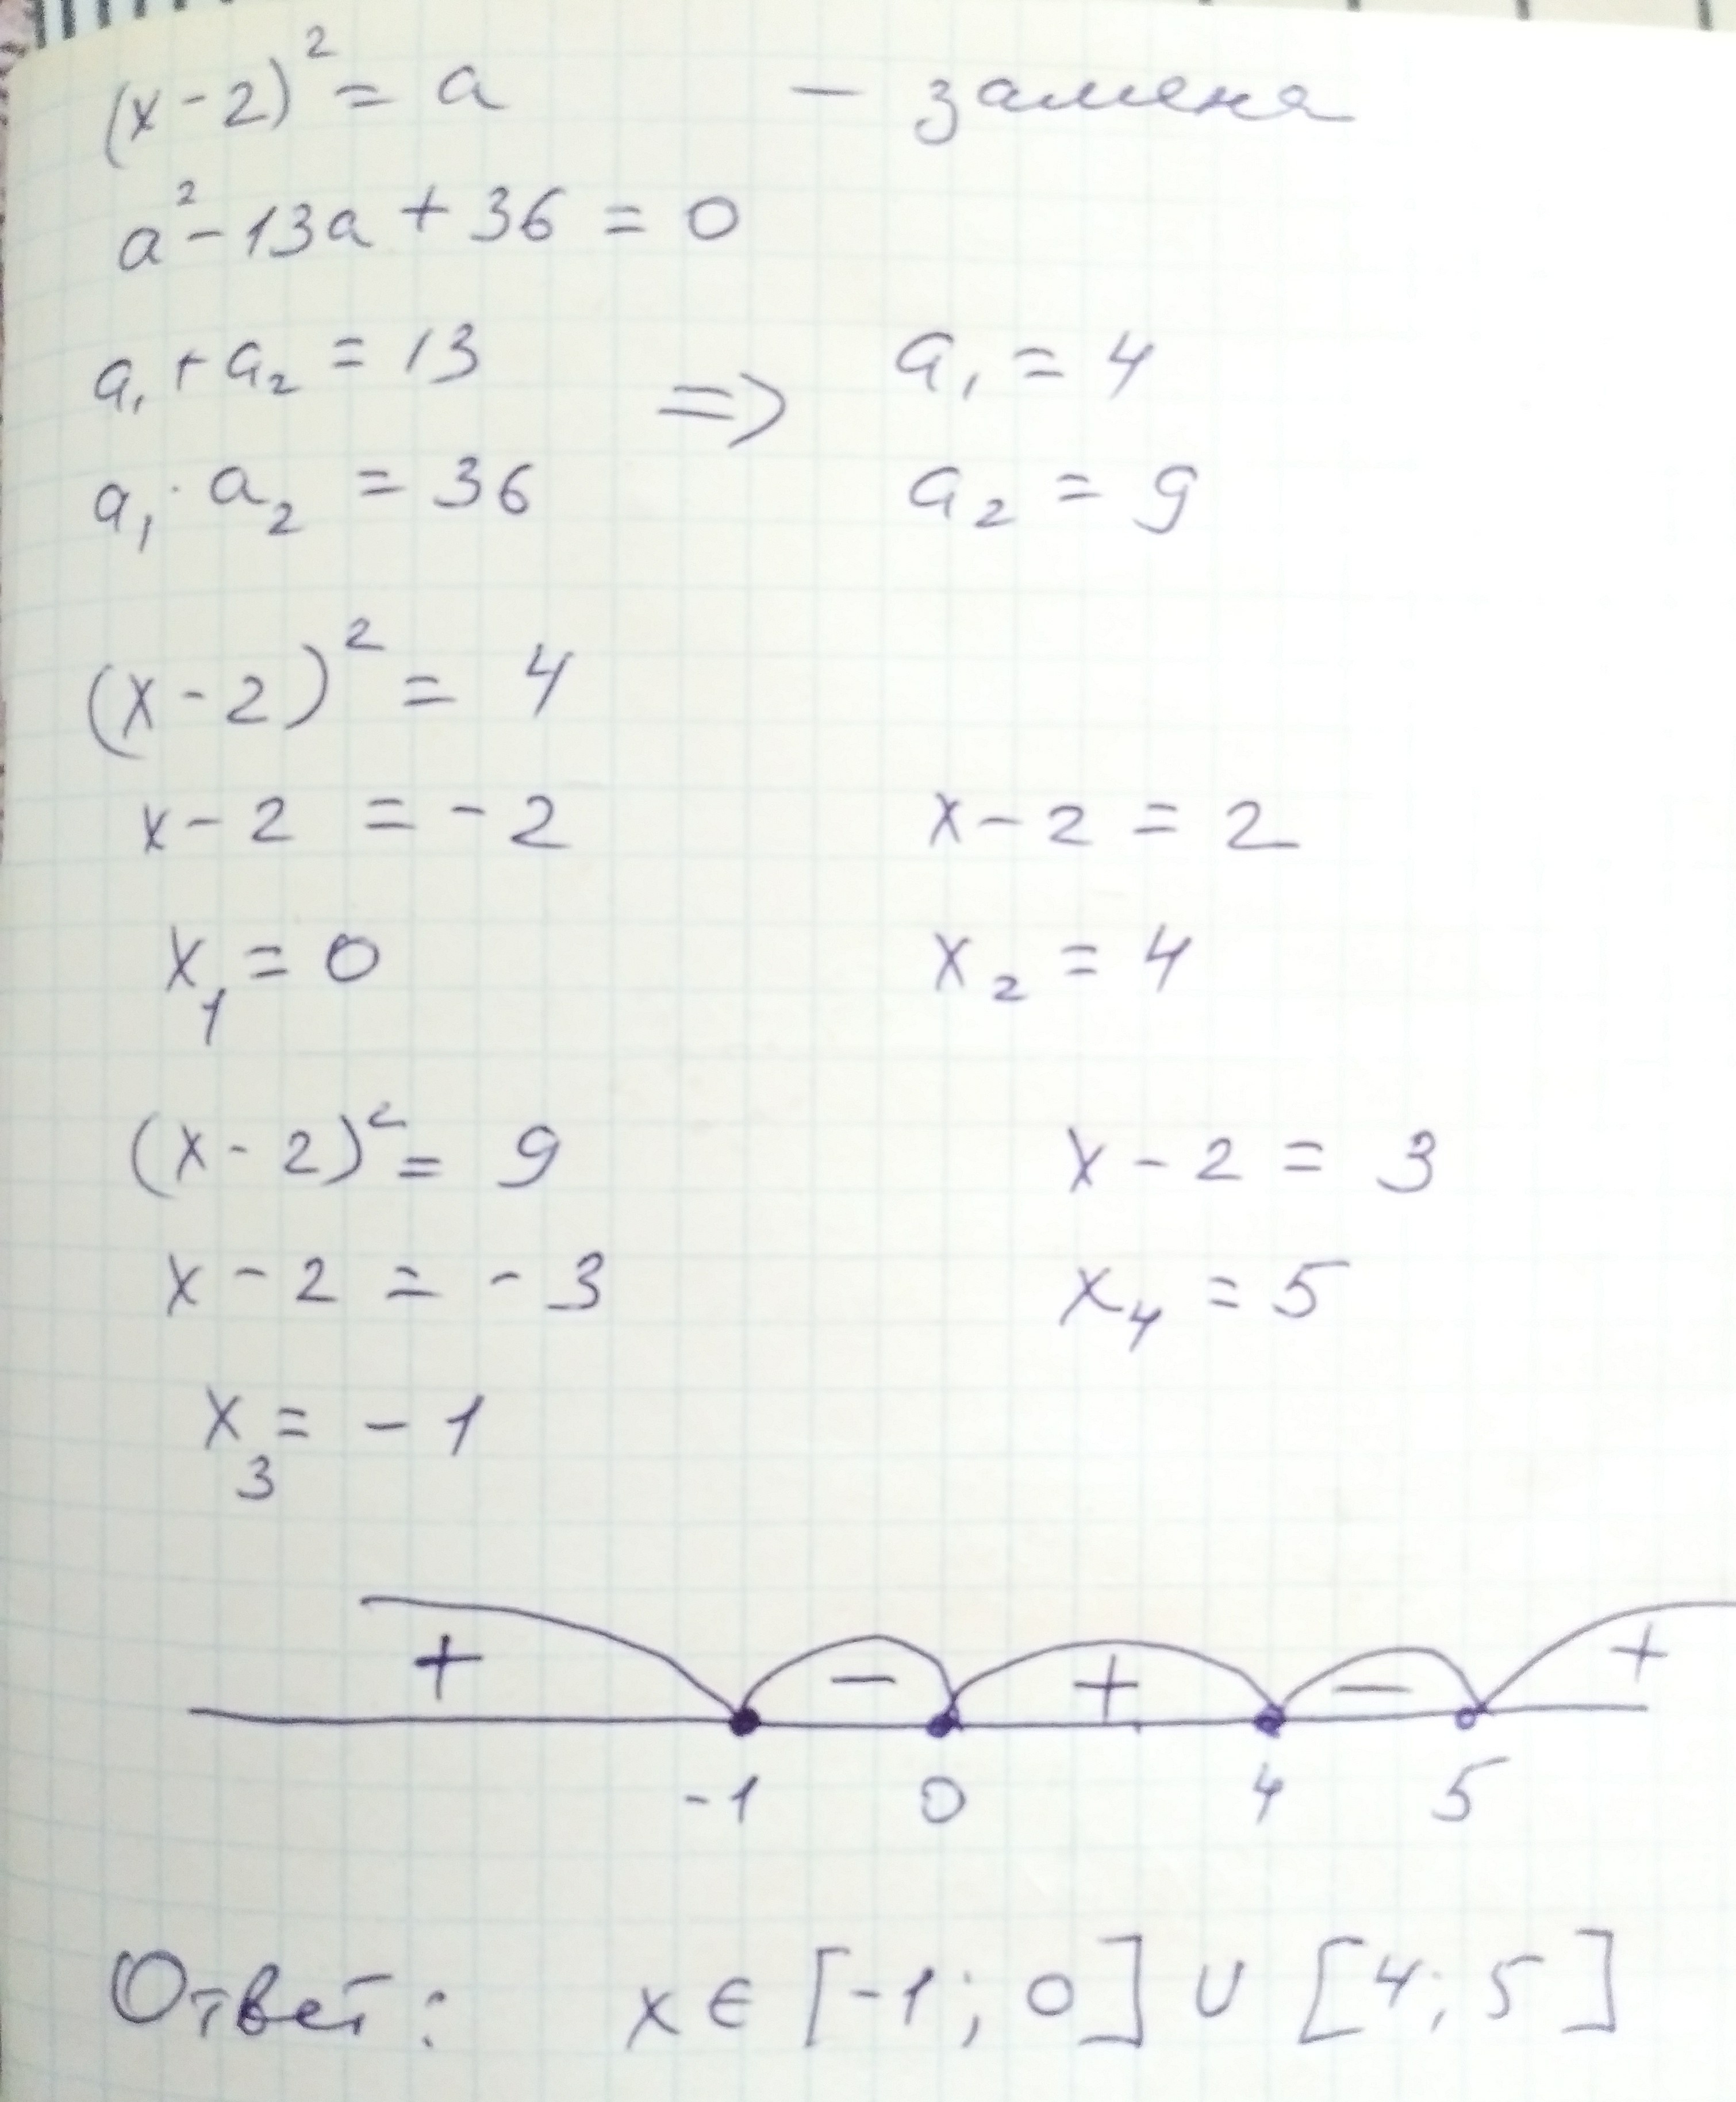 (x-2)² = a — замена
a² - 13a + 36 = 0
a₁ + a₂ = 13 => a₁ = 4
a₁ · a₂ = 36 a₂ = 9
(x-2)² = 4
x - 2 = -2 x - 2 = 2
x₁ = 0 x₂ = 4
(x-2)² = 9 x - 2 = 3
x - 2 = -3 x₄ = 5
x₃ = -1
+ - + - +
-1 0 4 5
Ответ: x ∈ [-1; 0] ∪ [4; 5]